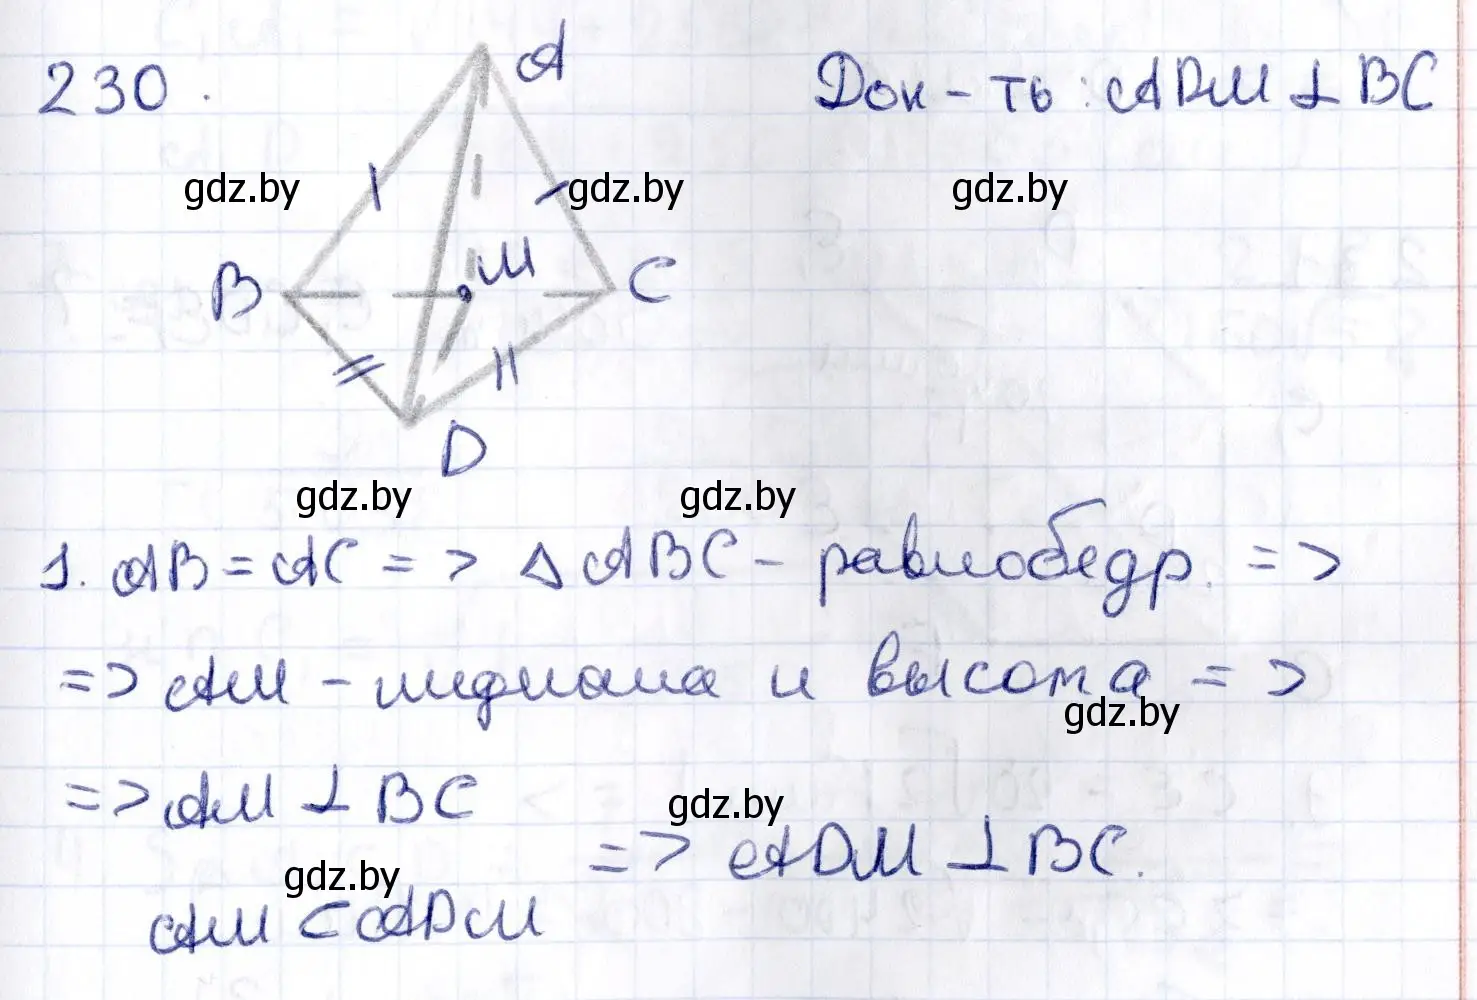 230.
Док-ть: ADM ⊥ BC
A
B
M
C
D
1. AB = AC => △ ABC - равнобедр. =>
=> AM - медиана и высота =>
=> AM ⊥ BC
AM ⊂ ADM
=> ADM ⊥ BC.
gdz.by
gdz.by
gdz.by
gdz.by
gdz.by
gdz.by
gdz.by
gdz.by